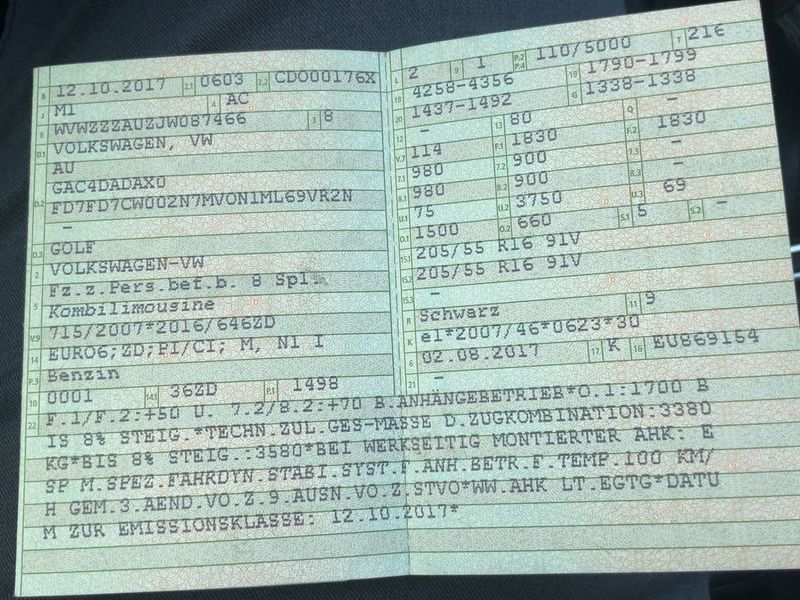 B 12.10.2017 2.1 0603 2.2 CDO00176X
J M1 4 AC
E WVWZZZAUZJW087466 3 8
D.1 VOLKSWAGEN, VW
AU
D.2 GAC4DADAX0
FD7FD7CW002N7MVON1ML69VR2N
-
D.3 GOLF
2 VOLKSWAGEN-VW
5 Fz.z.Pers.bef.b. 8 Spl.
Kombilimousine
V.9 715/2007*2016/646ZD
14 EURO6;ZD;PI/CI; M, N1 I
P.3 Benzin
10 0001 14.1 36ZD P.1 1498
L 2 9 1 P.2 P.4 110/5000 T 216
18 4258-4356 19 1790-1799
20 1437-1492 G 1338-1338
12 - 13 80 Q -
V.7 114 F.1 1830 F.2 1830
7.1 980 7.2 900 7.3 -
8.1 980 8.2 900 8.3 -
U.1 75 U.2 3750 U.3 69
O.1 1500 O.2 660 S.1 5 S.2 -
15.1 205/55 R16 91V
15.2 205/55 R16 91V
15.3 -
R Schwarz 11 9
K e1*2007/46*0623*30
6 02.08.2017 17 K 16 EU869154
21 -
22 F.1/F.2:+50 U. 7.2/8.2:+70 B.ANHÄNGEBETRIEB*O.1:1700 B
IS 8% STEIG.*TECHN.ZUL.GES-MASSE D.ZUGKOMBINATION:3380
KG*BIS 8% STEIG.:3580*BEI WERKSEITIG MONTIERTER AHK: E
SP M.SPEZ.FAHRDYN.STABI.SYST.F.ANH.BETR.F.TEMP.100 KM/
H GEM.3.AEND.VO.Z.9.AUSN.VO.Z.STVO*WW.AHK LT.EGTG*DATU
M ZUR EMISSIONSKLASSE: 12.10.2017*